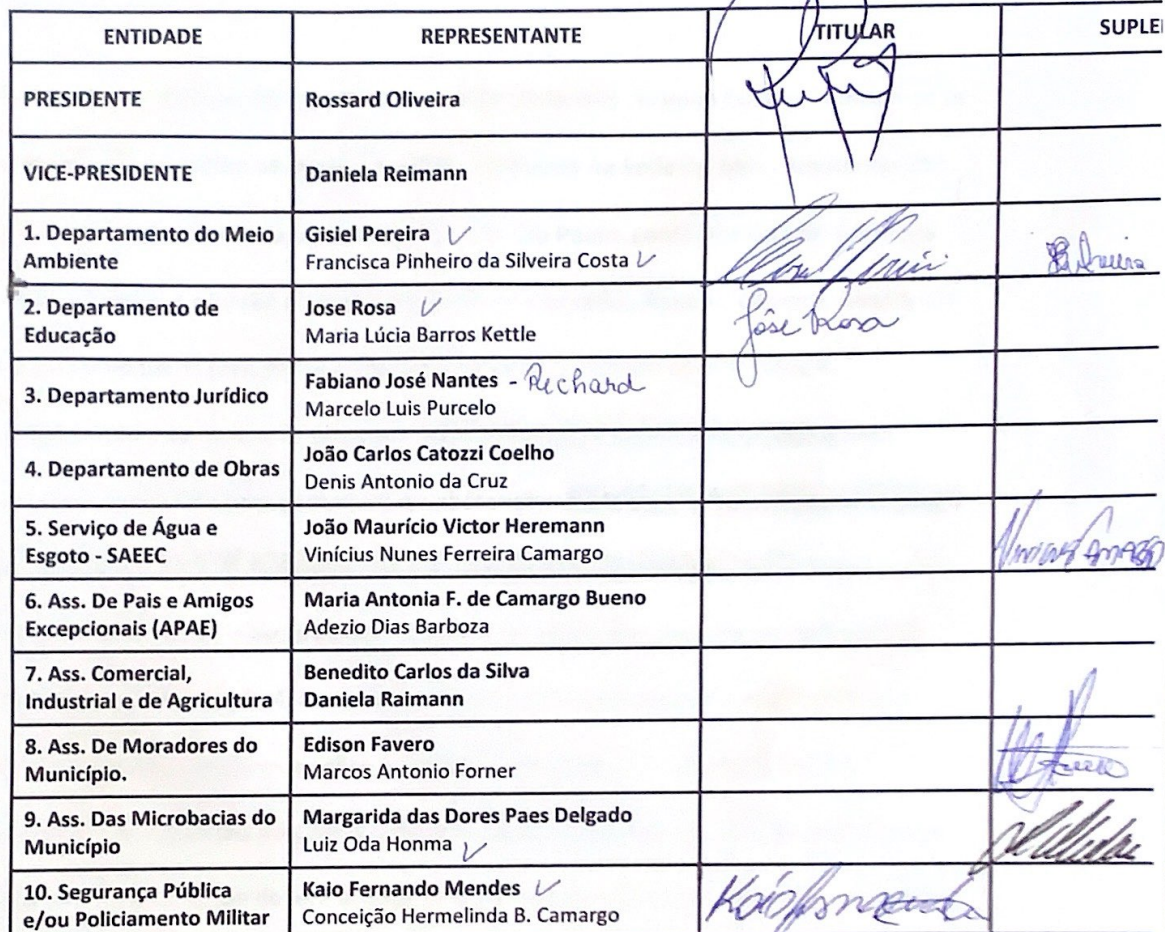 ENTIDADE REPRESENTANTE TITULAR SUPLE
PRESIDENTE Rossard Oliveira
VICE-PRESIDENTE Daniela Reimann
1. Departamento do Meio Ambiente
Gisiel Pereira ✓
Francisca Pinheiro da Silveira Costa ✓
2. Departamento de Educação
Jose Rosa ✓
Maria Lúcia Barros Kettle
José Rosa
3. Departamento Jurídico
Fabiano José Nantes - Richard
Marcelo Luis Purcelo
4. Departamento de Obras
João Carlos Catozzi Coelho
Denis Antonio da Cruz
5. Serviço de Água e
Esgoto - SAEEC
João Maurício Victor Heremann
Vinícius Nunes Ferreira Camargo
6. Ass. De Pais e Amigos
Excepcionais (APAE)
Maria Antonia F. de Camargo Bueno
Adezio Dias Barboza
7. Ass. Comercial,
Industrial e de Agricultura
Benedito Carlos da Silva
Daniela Raimann
8. Ass. De Moradores do
Município.
Edison Favero
Marcos Antonio Forner
9. Ass. Das Microbacias do
Município
Margarida das Dores Paes Delgado
Luiz Oda Honma ✓
10. Segurança Pública
e/ou Policiamento Militar
Kaio Fernando Mendes ✓
Conceição Hermelinda B. Camargo